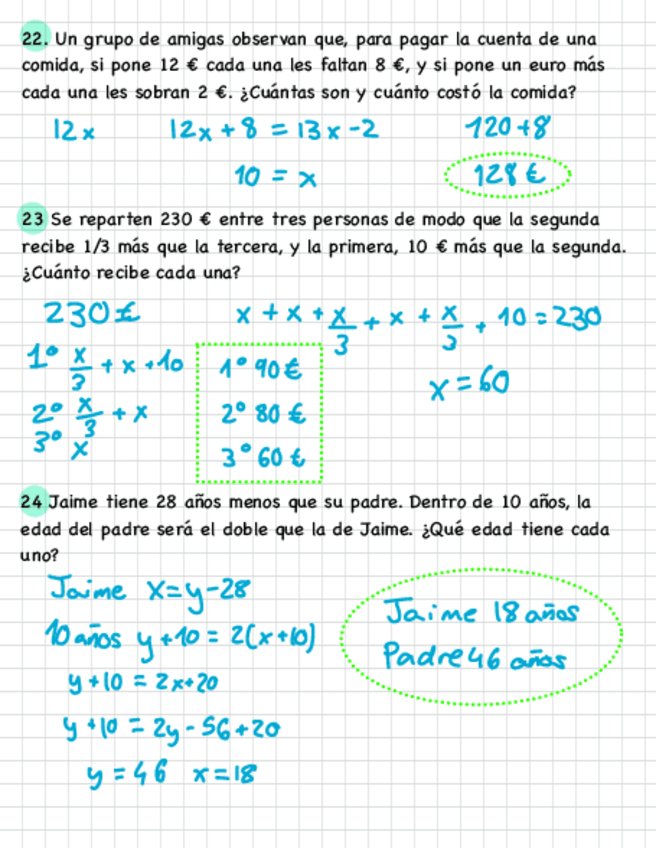 22. Un grupo de amigas observan que, para pagar la cuenta de una
comida, si pone 12 € cada una les faltan 8 €, y si pone un euro más
cada una les sobran 2 €. ¿Cuántas son y cuánto costó la comida?
12x 12x + 8 = 13x - 2 120 + 8
10 = x 128 €
23 Se reparten 230 € entre tres personas de modo que la segunda
recibe 1/3 más que la tercera, y la primera, 10 € más que la segunda.
¿Cuánto recibe cada una?
230 € x + x + x/3 + x + x/3 + 10 = 230
1º x/3 + x + 10 1º 90 € x = 60
2º x/3 + x 2º 80 €
3º x 3º 60 €
24 Jaime tiene 28 años menos que su padre. Dentro de 10 años, la
edad del padre será el doble que la de Jaime. ¿Qué edad tiene cada
uno?
Jaime x = y - 28
Jaime 18 años
10 años y + 10 = 2(x + 10)
Padre 46 años
y + 10 = 2x + 20
y + 10 = 2y - 56 + 20
y = 46 x = 18